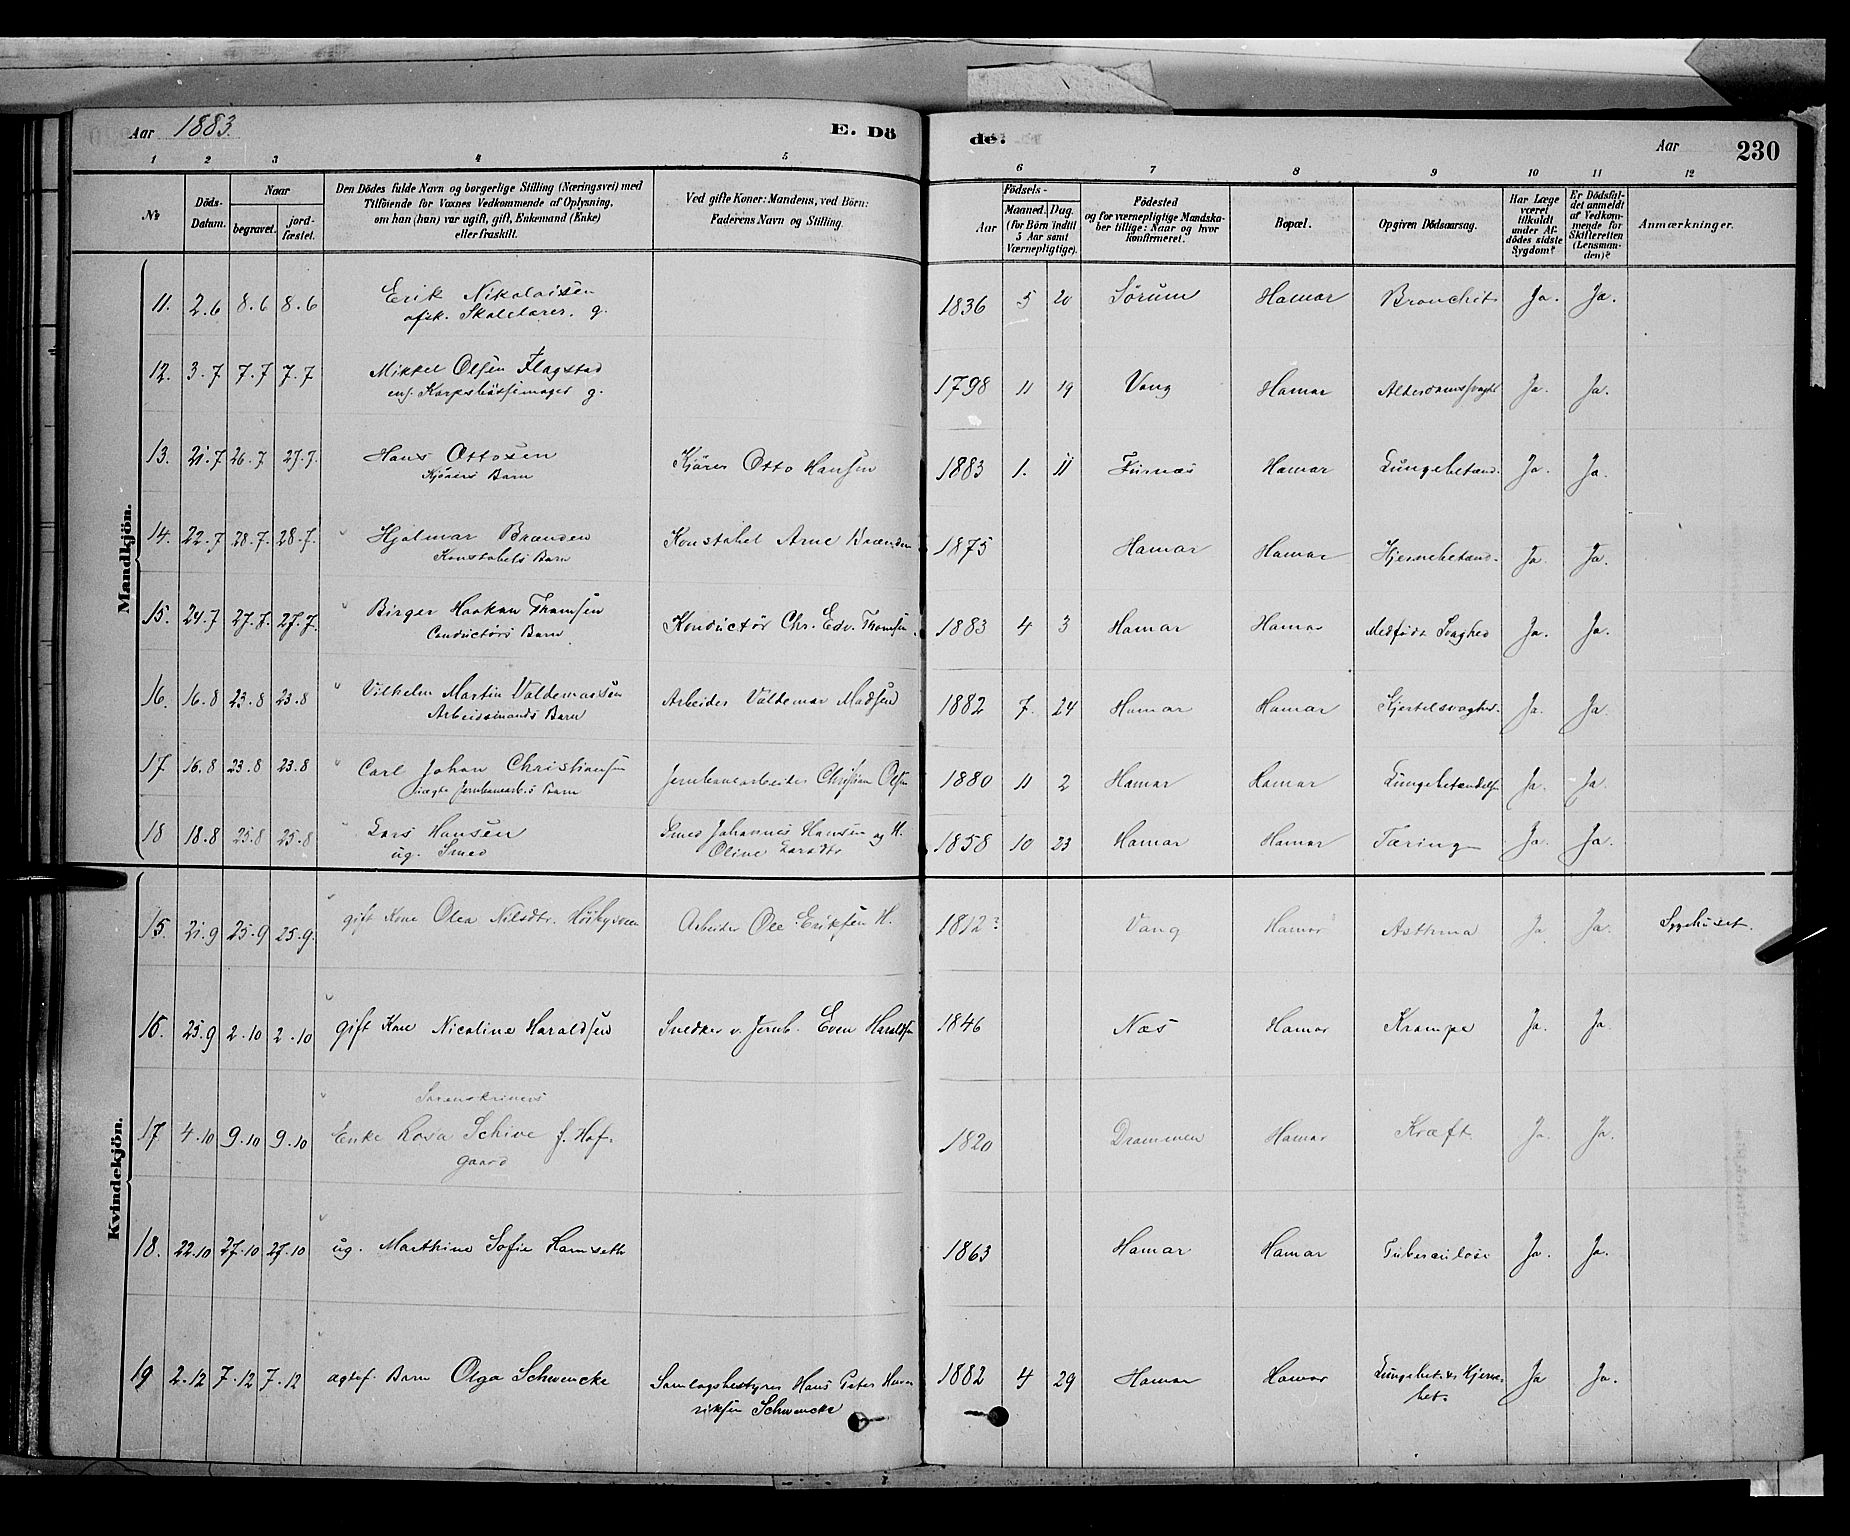 Aar 1883. E. Dö de. Aar 230
1 2 3 4 5 6 7 8 9 10 11 12
№ Döds-Datum. Naar begravet. jord-fæstet. Den Dödes fulde Navn og borgerlige Stilling (Næringsvei) med Tilföiende for Voxnes Vedkommende af Oplysning, om han (hun) var ugift, gift, Enkemand (Enke) eller fraskilt. Ved gifte Koner: Mandens, ved Börn: Faderens Navn og Stilling. Födsels- Aar Maaned. Dag. (for Börn indtil 5 Aar samt Værnepligtige). Födested og for værnepligtige Mandskaber tillige: Naar og hvor konfirmeret. Bopæl. Opgiven Dödsaarsag. Har Læge været tilkaldt under Afdödes sidste Sygdom? Er Dödsfaldet anmeldt af Vedkommende for Skifteretten (Lensmanden)? Anmærkninger.
Mandkjön.
11. 2.6 8.6 8.6 Erik Nikolaisen 1836 5 20 Sørum Hamar Bronchit Ja. Ja.
afsk. Skolelærer. g.
12. 3.7 7.7 7.7 Mikkel Olsen Flagstad 1798 11 19 Vang Hamar Ja. Ja.
g.
13. 21.7 26.7 27.7. Hans Ottosen Kjører Otto Hansen 1883 1. 11 Furnæs Hamar Lungebetænd. Ja. Ja.
Kjørers Barn
14. 22.7 28.7. 28.7. Hjalmar Brænden Konstabel Arne Brænden 1875 Hamar Hamar Hjernebetænd. Ja. Ja.
Konstabels Barn
15. 24.7 27.7. 27.7. Birger Haakon Thomsen Konductør Chr. Edv. Thomsen. 1883 4 3 Hamar Hamar Medfødt Svaghed Ja. Ja.
Conductørs Barn
16. 16.8 23.8 23.8 Vilhelm Martin Valdemarsen Arbeider Valdemar Madsen 1882 7. 24 Hamar Hamar Kjertelsvaghed. Ja. Ja
Arbeidsmands Barn
17 16.8 23.8 23.8 Carl Johan Christiansen Jernbanearbeider Christian Olsen 1880 11 2 Hamar Hamar Lungebetændelse Ja. Ja.
uægte Jernbanearb.s Barn
18 18.8 25.8 25.8 Lars Hansen Smed Johannes Hansen og H. 1858 10 23 Hamar Hamar Tæring Ja. Ja.
ug. Smed Oline Larsdtr
Kvindekjön.
15. 21.9 25.9 25.9. gift Kone Olea Nilsdtr. Arbeider Ole Eriksen H. 1812? Vang Hamar Asthma Ja Ja. Sygehuset.
16. 25.9 2.10 2.10 gift Kone Nicoline Haraldsen Snedker v. Jernb. Even Haraldsen 1846 Næs Hamar Krampe Ja. Ja.
Sorenskrivers
17 4.10 9.10 9.10 Enke Rosa Schive f. Hof- 1820 Drammen Hamar Kræft. Ja. Ja.
gaard
18. 22.10 27.10 27.10 ug. Marthine Sofie Hamseth 1863 Hamar Hamar Tuberculose Ja. Ja.
19 2.12 7.12 7.12 ægtef. Barn Olga Schwencke Samlagsbestyrer Hans Peter Hen- 1882 4 29 Hamar Hamar Lungebet. & Hjerne- Ja Ja.
riksen Schwencke bet.